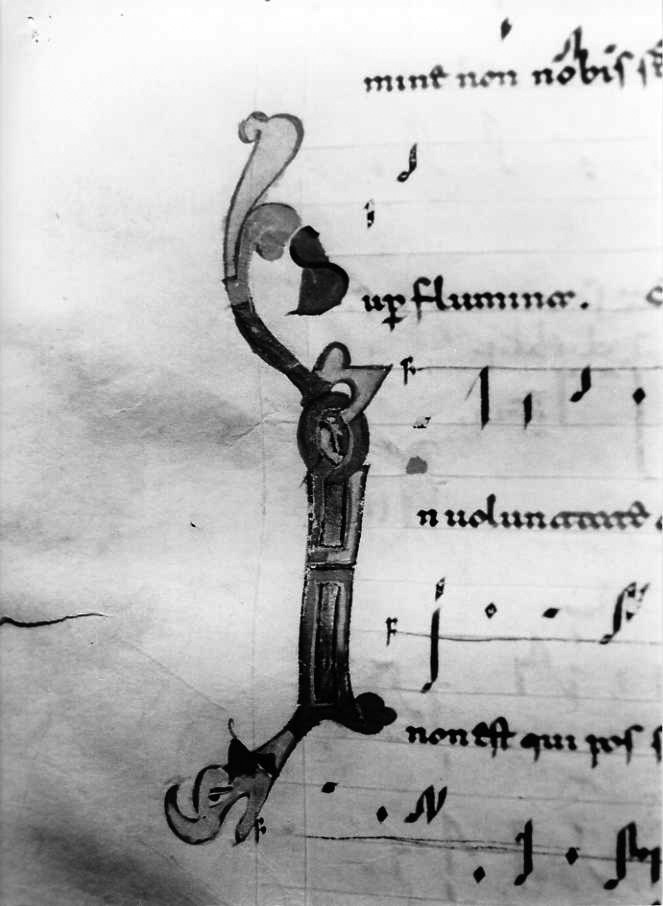 mine non nobis
up flumina.
n uoluntate
non est qui pos